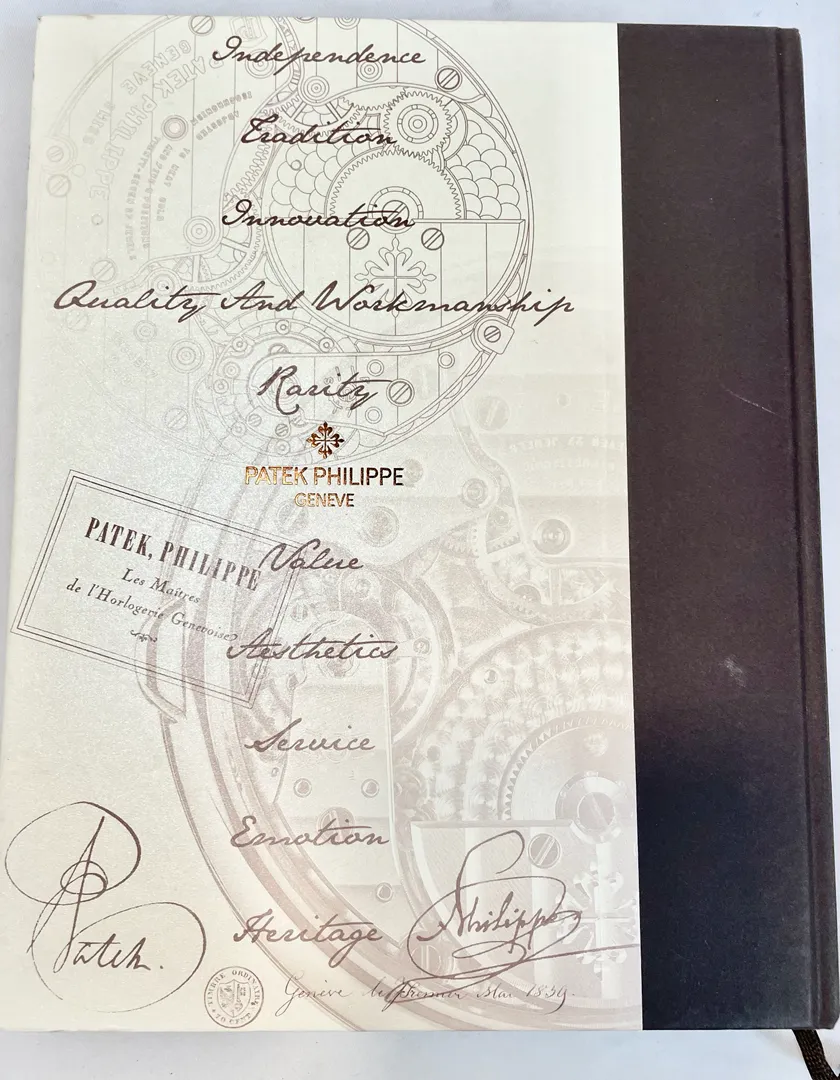 Independence
Tradition
Innovation
Quality And Workmanship
Rarity
PATEK PHILIPPE
GENEVE
PATEK, PHILIPPE
Les Maîtres
de l'Horlogerie Genevoise
Value
Aesthetics
Service
Emotion
Heritage
Patek.
Philippe
TIMBRE ORDINAIRE
Genève le Premier Mai 1839.
PATEK PHILIPPE
GENEVE